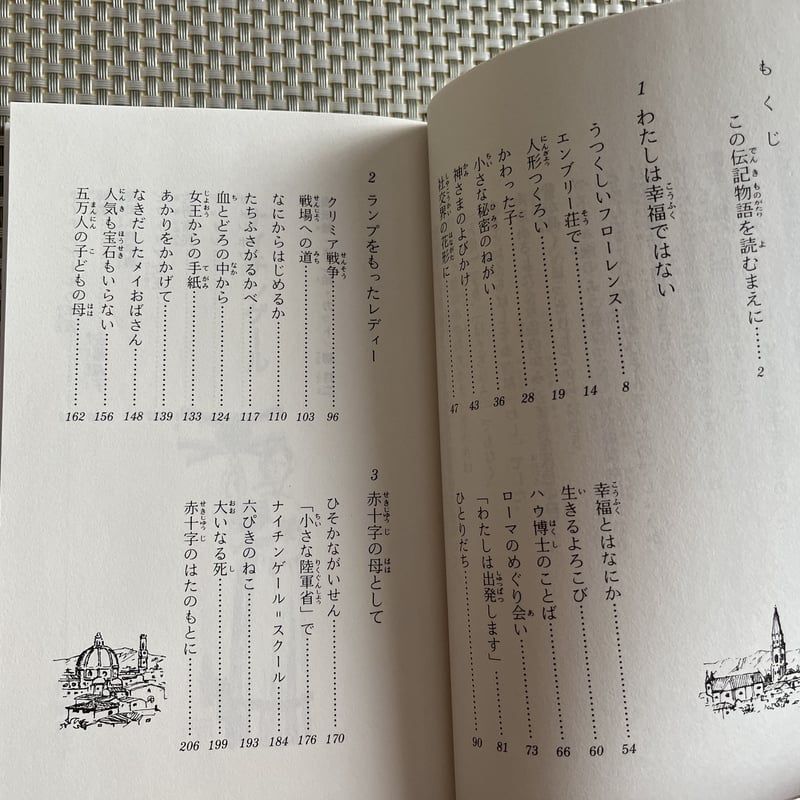 もくじ
この伝記物語を読むまえに……2
1 わたしは幸福ではない
うつくしいフローレンス……8
エンブリー荘で……14
人形つくろい……19
かわった子……28
小さな秘密のねがい……36
神さまのよびかけ……43
社交界の花形に……47
幸福とはなにか……54
生きるよろこび……60
ハウ博士のことば……66
ローマのめぐり会い……73
「わたしは出発します」……81
ひとりだち……90
2 ランプをもったレディー
クリミア戦争……96
戦場への道……103
なにからはじめるか……110
たちふさがるかべ……117
血とどろの中から……124
女王からの手紙……133
あかりをかかげて……139
なきだしたメイおばさん……148
人気も宝石もいらない……156
五万人の子どもの母……162
3 赤十字の母として
ひそかながいせん……170
「小さな陸軍省」で……176
ナイチンゲール＝スクール……184
六ぴきのねこ……193
大いなる死……199
赤十字のはたのもとに……206